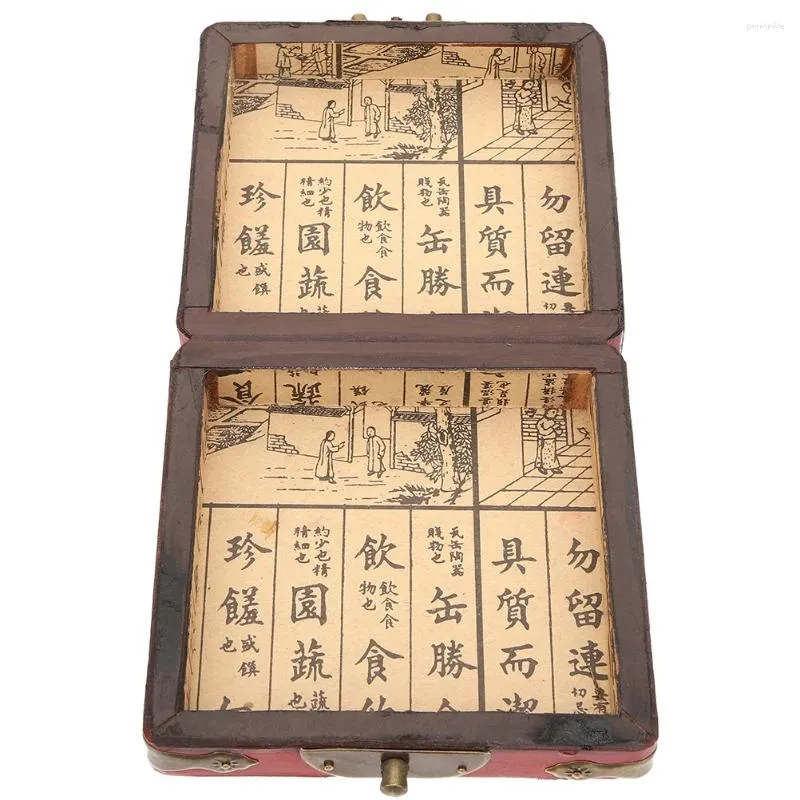 periwinkle
勿留連
具質而潔
瓦缶陶器
賤物也
缶勝
飲
飲食食
物也
食
約少也精
精細也
園蔬
珍饈
或饌
也
食
蔬
勿留連
要有
切忌
具質而潔
瓦缶陶器
賤物也
缶勝金
飲
飲食食
物也
食約
約少也精
精細也
園蔬
蔬
也
珍饈
或饌
也